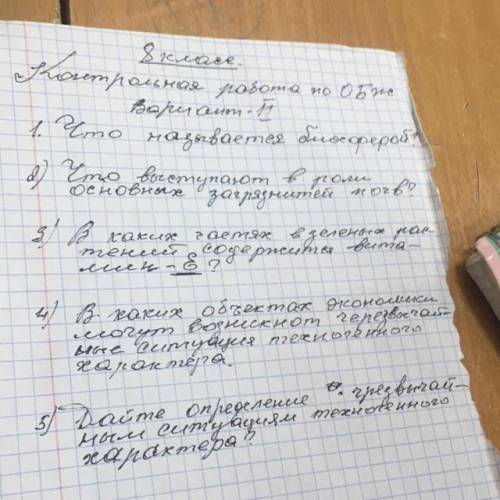 8 класс.
Контрольная работа по ОБЖ
Вариант-II
1. Что называется биосферой?
2) Что выступают в роли
основных загрязнитей почв?
3) В каких частях взеленых рас-
тений содержится вита-
мин - Е?
4) В каких объектах экономики
могут возникнот черезвычай-
ные ситуация техногенного
характера.
5) Дайте определение чрезвычай-
ным ситуациям техногенного
характера?